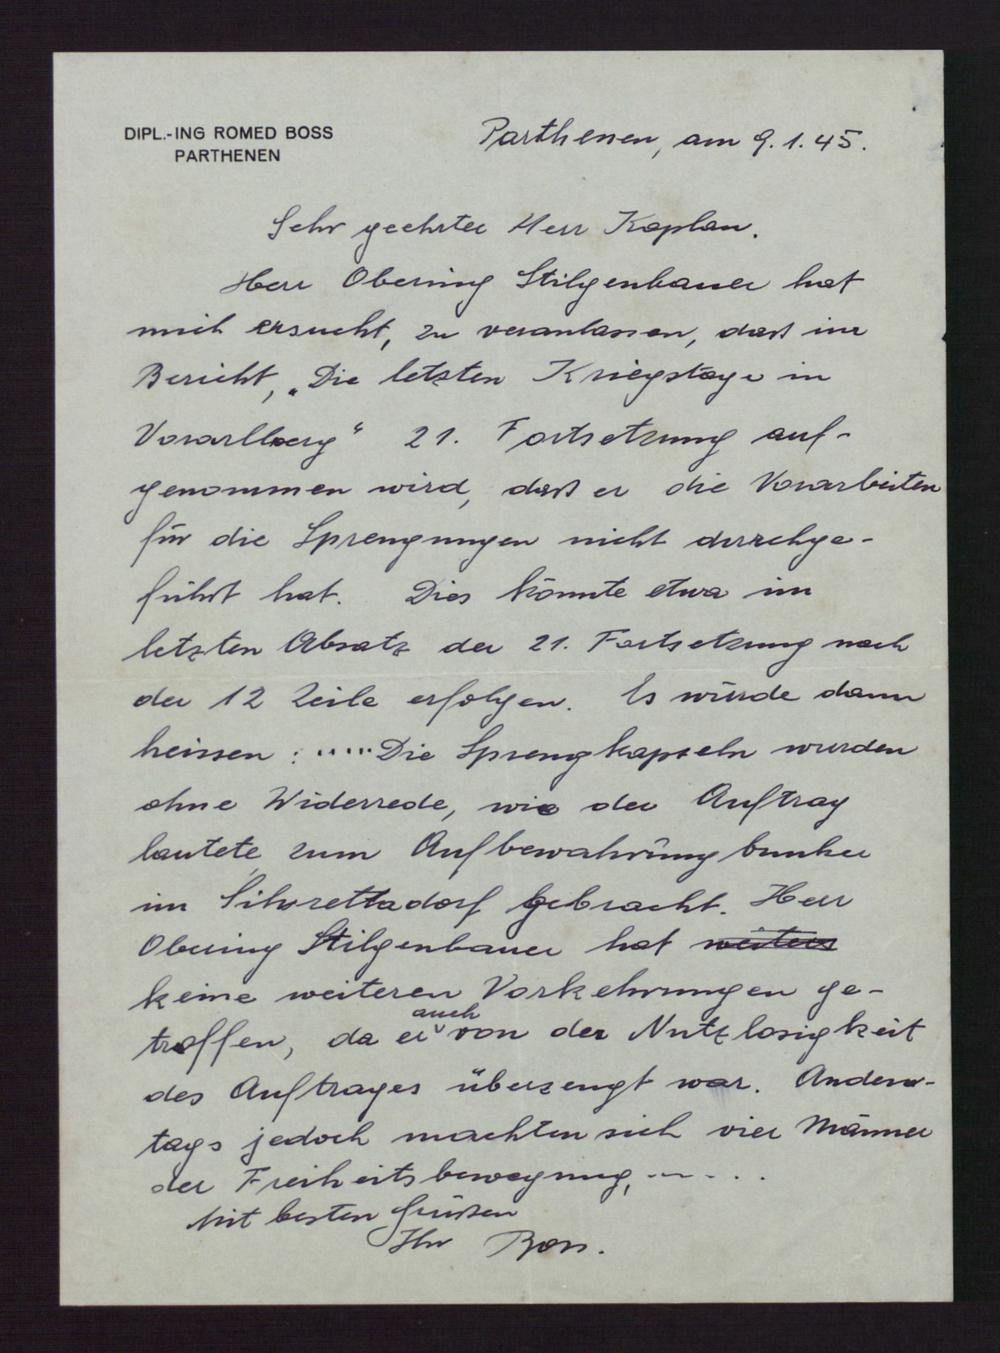 DIPL.-ING ROMED BOSS
PARTHENEN
Parthenen, am 9.1.45.
Sehr geehrter Herr Kaplan.
Herr Obering Stilgenbauer hat
mich ersucht, zu veranlassen, dass im
Bericht, „Die letzten Kriegstage in
Vorarlberg“ 21. Fortsetzung auf-
genommen wird, dass er die Vorarbeiten
für die Sprengungen nicht durchge-
führt hat. Dies könnte etwa im
letzten Absatz der 21. Fortsetzung nach
der 12 Zeile erfolgen. Es würde dann
heissen : ..... Die Sprengkapseln wurden
ohne Widerrede, wie der Auftrag
lautete zum Aufbewahrungbunker
im Silvrettadorf gebracht. Herr
Obering Stilgenbauer hat weiters
keine weiteren Vorkehrungen ge-
auch
troffen, da er von der Nutzlosigkeit
des Auftrages überzeugt war. Andern-
tags jedoch machten sich vier Männer
der Freiheitsbewegung, .....
Mit besten Grüssen
Ihr Boss.